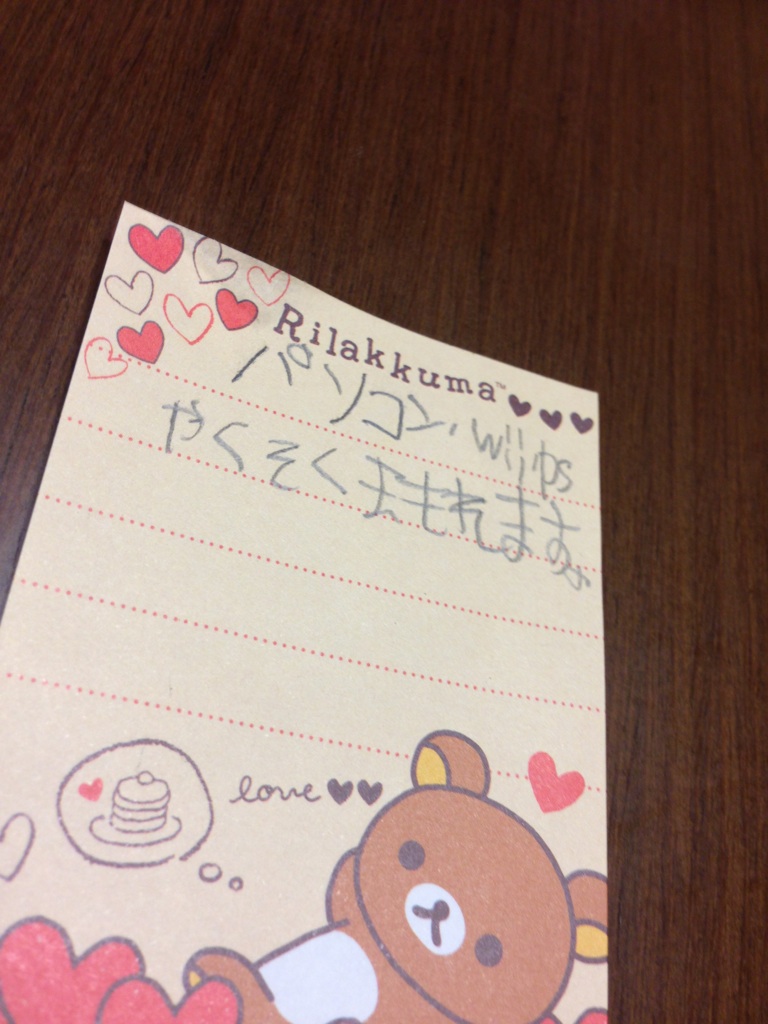 Rilakkuma™
パソコン,wii,ps
やくそくまもれます
love